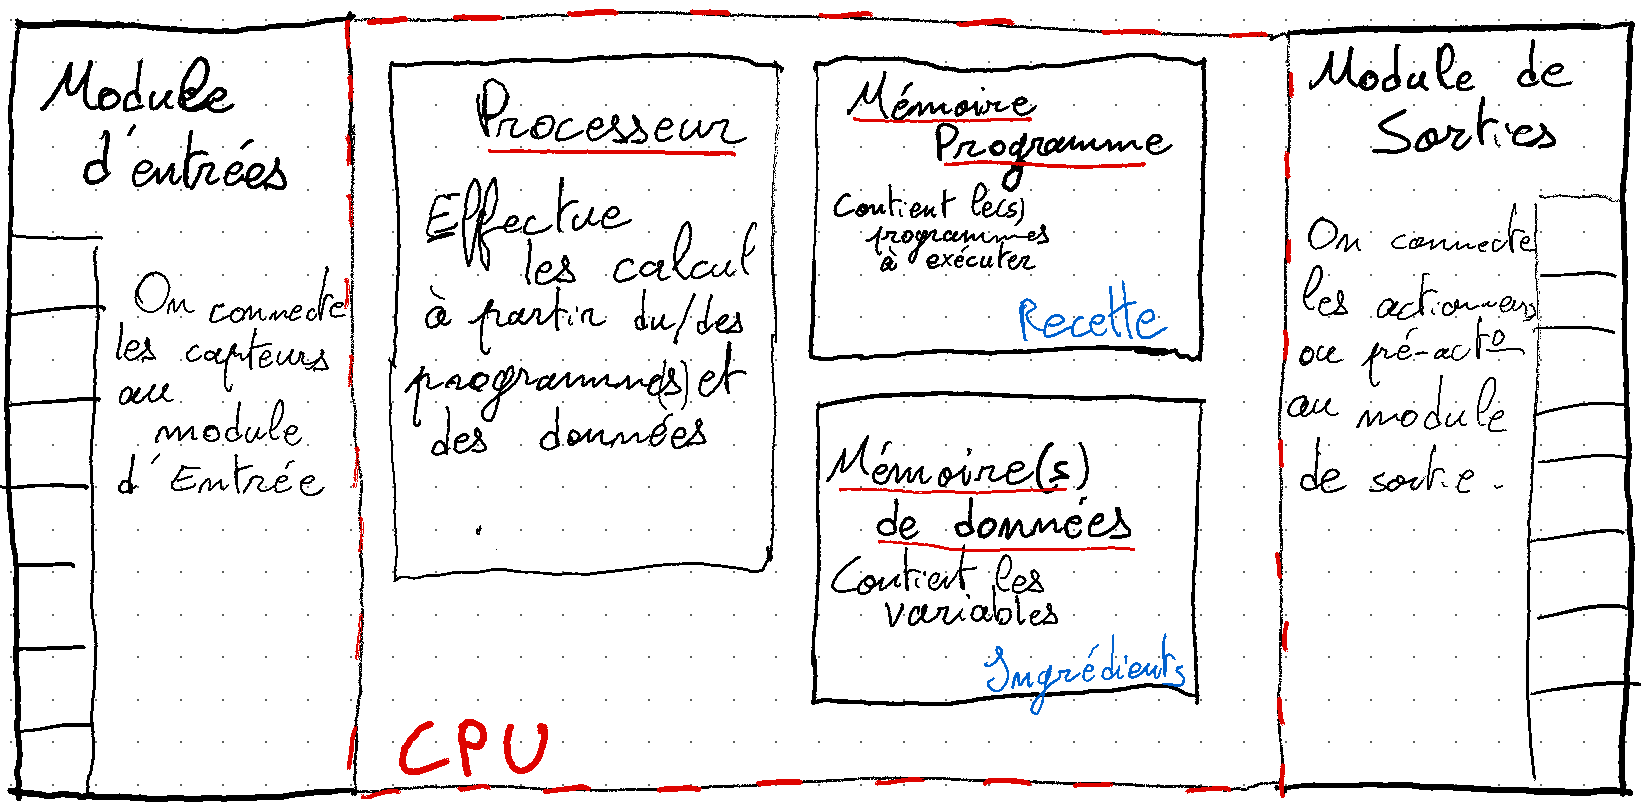 Module
d'entrées
On connecte
les capteurs
au
module
d'Entrée
Processeur
Effectue
les calcul
à partir du/des
programme(s) et
des données
Mémoire
Programme
Contient le(s)
programmes
à exécuter
Recette
Mémoire(s)
de données
Contient les
variables
Ingrédients
CPU
Module de
Sorties
On connecte
les actionneurs
ou pré-act°
au module
de sortie.